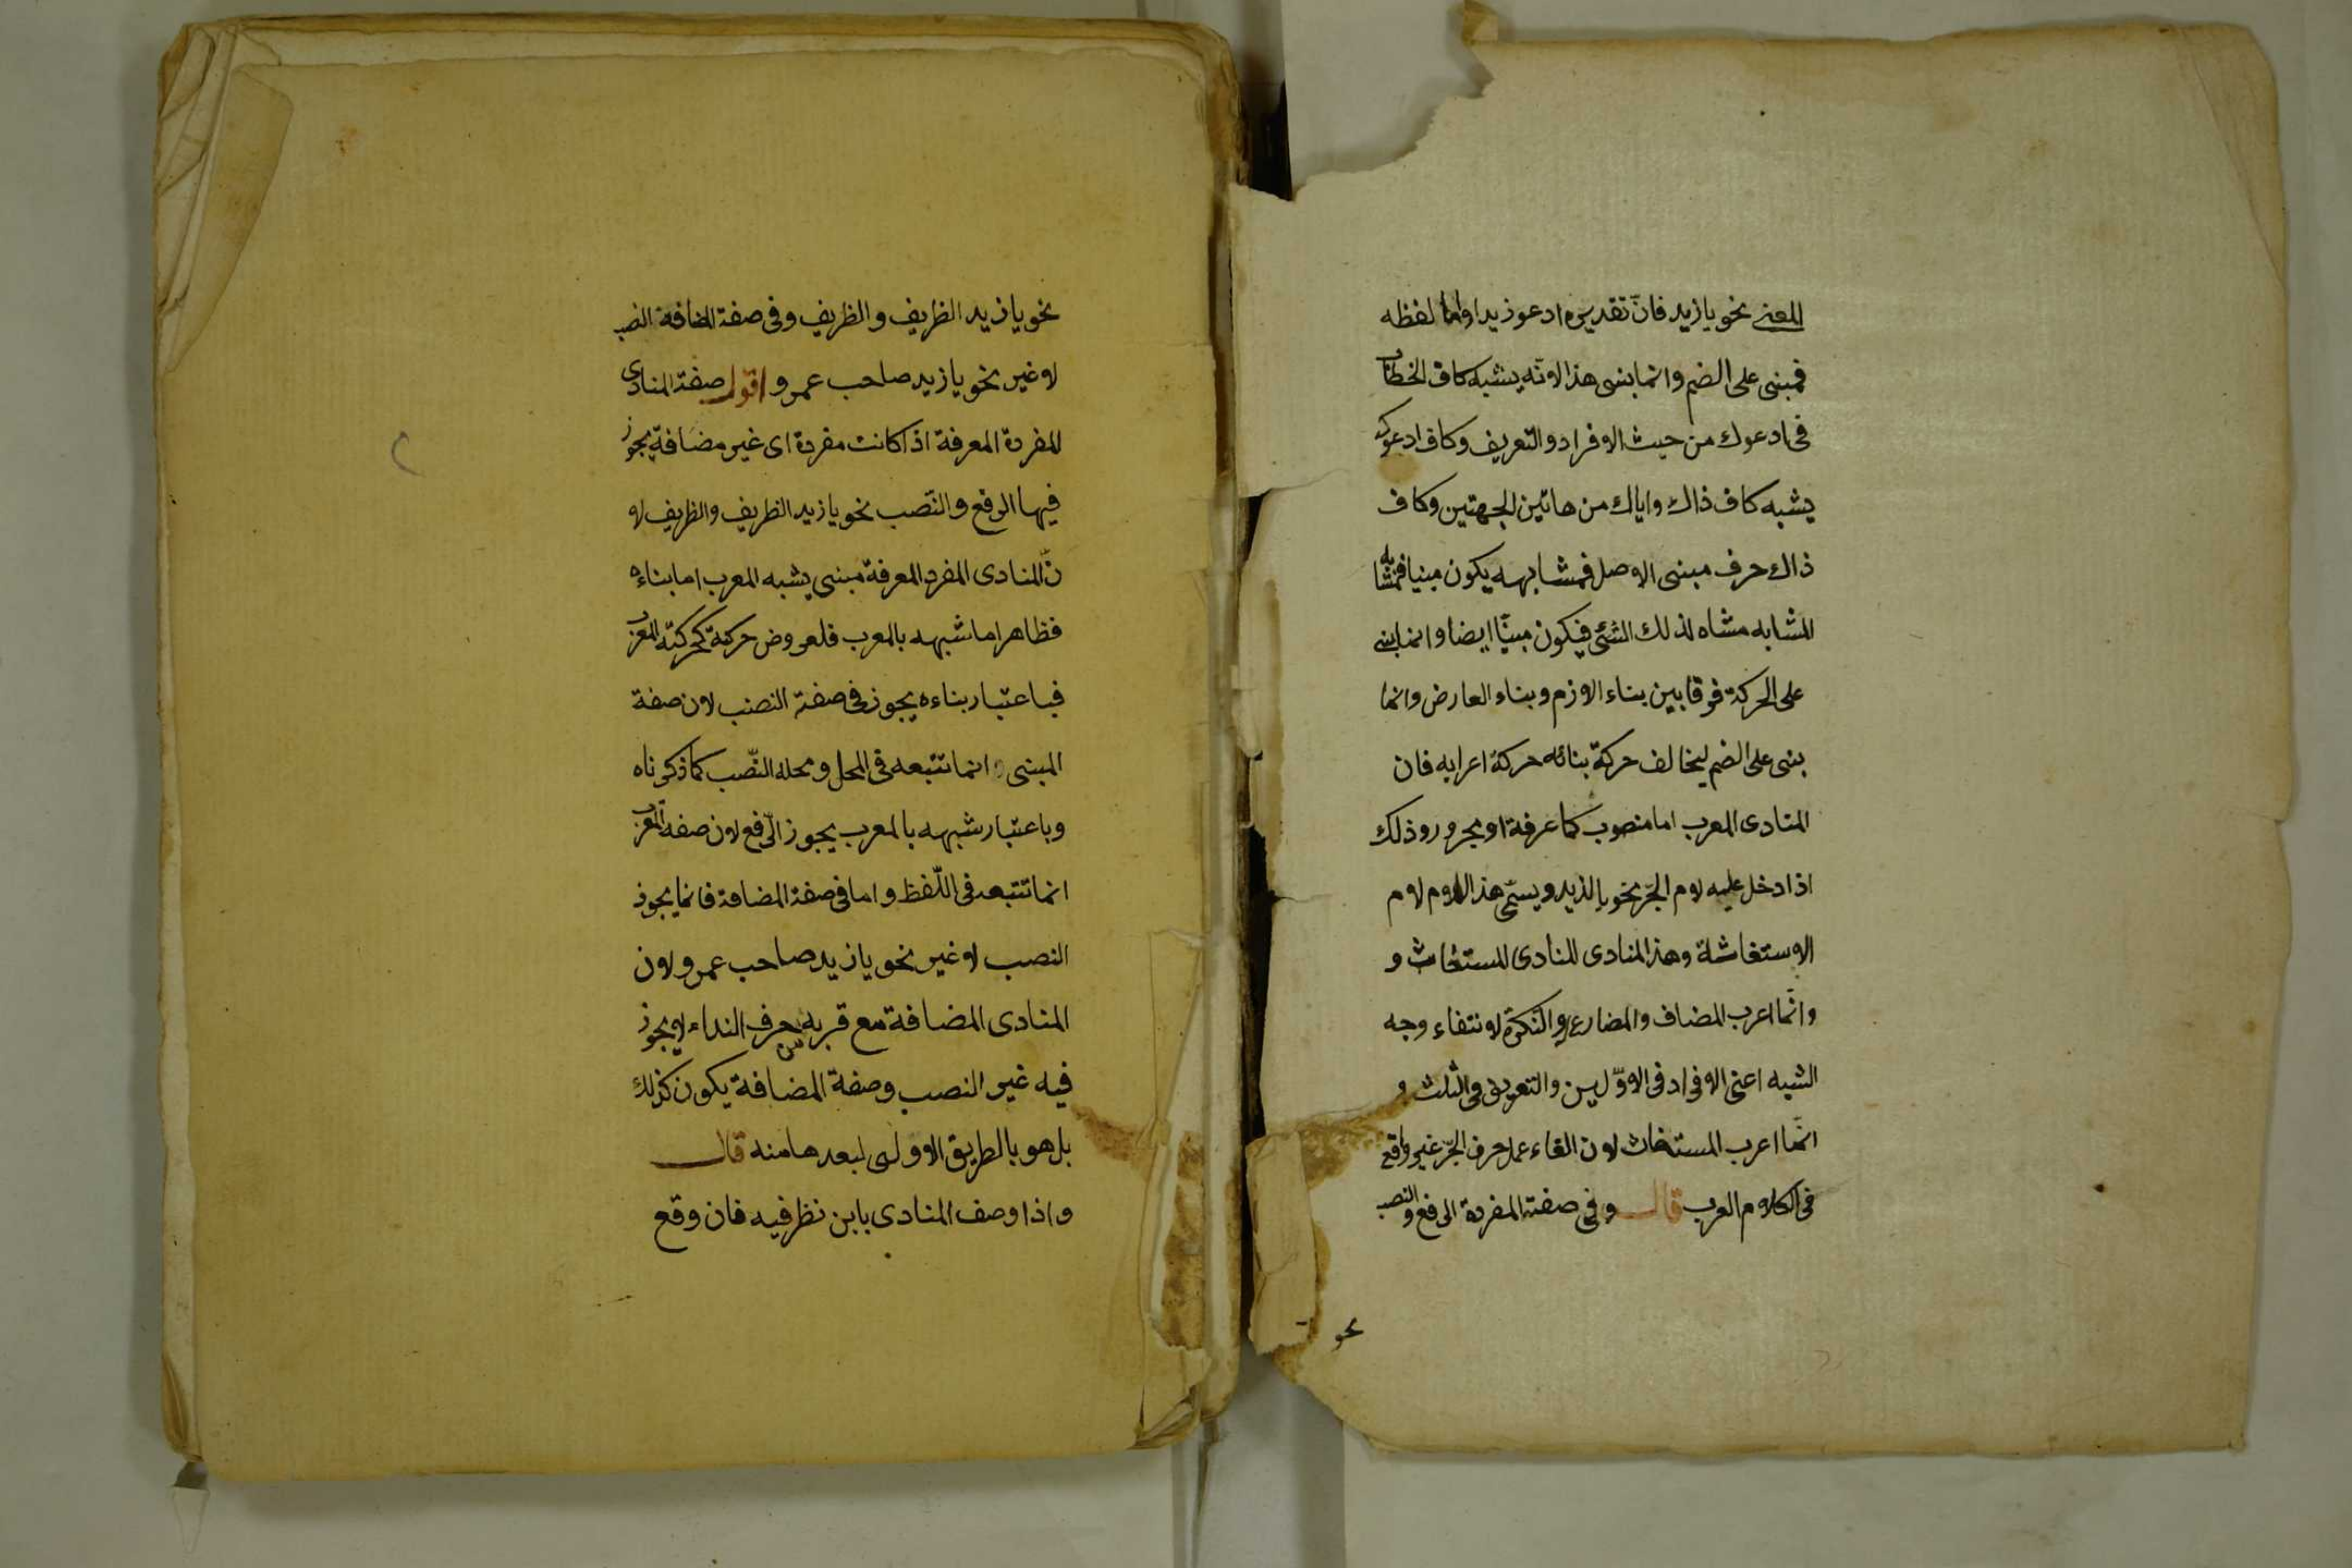 المعنى نحو يا زيد فانّ تقديره ادعو زيدا واما لفظه
فمبنى على الضم وانما بنى هذا لانّه يشبه كاف الخطاب
فى ادعوك من حيث الافراد والتعريف وكاف ادعوك
يشبه كاف ذاك واياك من هاتين الجهتين وكاف
ذاك حرف مبنى الاصل فمشابهه يكون مبنيا فمشابه
المشابه مشاه لذلك الشئ فيكون مبنيّا ايضا وانما بنى
على الحركة فرقا بين بناء الازم وبناء العارض وانما
بنى على الضم ليخالف حركة بنائه حركة اعرابه فان
المنادى المعرب اما منصوب كما عرفة او مجرور وذلك
اذا دخل عليه لام الجّر نحو يا لزيد ويسمّى هذا اللام لام
الاستغاشة وهذا المنادى المنادى المستغاث و
وانّما اعرب المضاف والمضارع والنّكرة لانتفاء وجه
الشبه اعنى الافراد فى الاوّلين والتعريف فى الثلث و
انّما اعرب المستغاث لان الغاء عمل حرف الجّر غير واقع
فى الكلام العرب قال وفى صفته المفردة الرفع والنصب
نحو
نحو يا زيد الظريف والظريف وفى صفة المضافة النصب
لا غير نحو يا زيد صاحب عمرو اقول صفة المنادى
المفردة المعرفة اذا كانت مفردة اى غير مضافة يجوز
فيها الرفع والنّصب نحو يا زيد الظريف والظريف لا
نّ المنادى المفرد المعرفة مبنى يشبه المعرب اما بناءه
فظاهر اما شبهه بالمعرب فلعروض حركة كحركته المعرب
فباعتبار بناءه يجوز فى صفته النصب لان صفة
المبنى انما تتبعه فى المحل ومحله النّصب كما ذكرناه
وباعتبار شبهه بالمعرب يجوز الرّفع لان صفه المعرب
انما تتبعه فى اللّفظ واما فى صفة المضافة فانما يجوز
النصب لا غير نحو يا زيد صاحب عمرو لان
المنادى المضافة مع قربه من حرف النداء لا يجوز
فيه غير النصب وصفة المضافة يكون كذلك
بل هو بالطريق الاولى لبعدها منه قال
واذا وصف المنادى بابن نظر فيه فان وقع